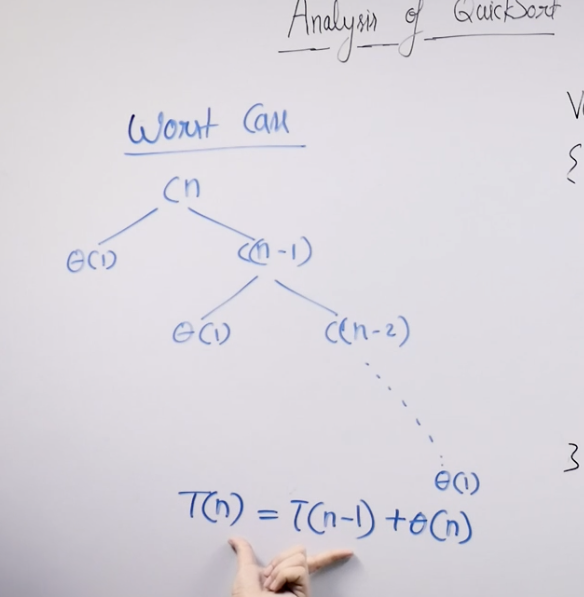 Analysis of QuickSort
Worst Case
Cn
θ(1) C(n-1)
θ(1) C(n-2)
θ(1)
T(n) = T(n-1) + θ(n)
{
}